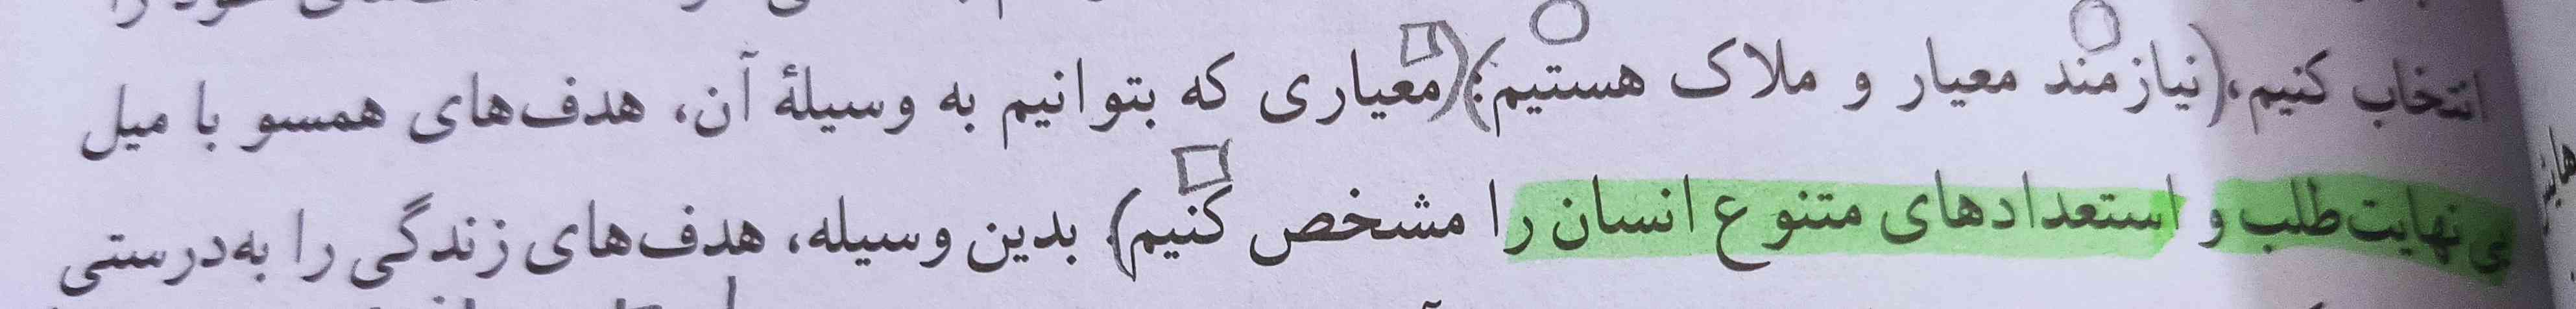 انتخاب کنیم، (نیازمند معیار و ملاک هستیم؛) (معیاری که بتوانیم به وسیلهٔ آن، هدف‌های همسو با میل
بی‌نهایت‌طلب و استعدادهای متنوع انسان را مشخص کنیم). بدین وسیله، هدف‌های زندگی را به‌درستی